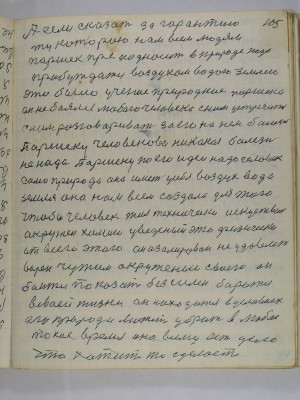 А если сказат за гарантию 105
ту которою нам всем людям
паршек преподносит в природе надо
пробуждатця воздухом водою землею
это было учение природное паршека
он не боялся любого человека с ним устречат
с ним розговариват за его на нем болезн
Паршеку человекова никакая болезн
не нада Паршеку по его идеи надо человек
само природа она имет у себя воздух вода
земля она нам всем создала для того
чтобы человек жил технически искуственно
окружен химии уведеный это физически
от всего этого он изолирован не удовлетв
варен чужим окружением своего он
боится показат без сили борятця
в своей жизни он находится в условиях
его природа может убрат в любое
такое время она в ему ест дело
что хотит то сделает